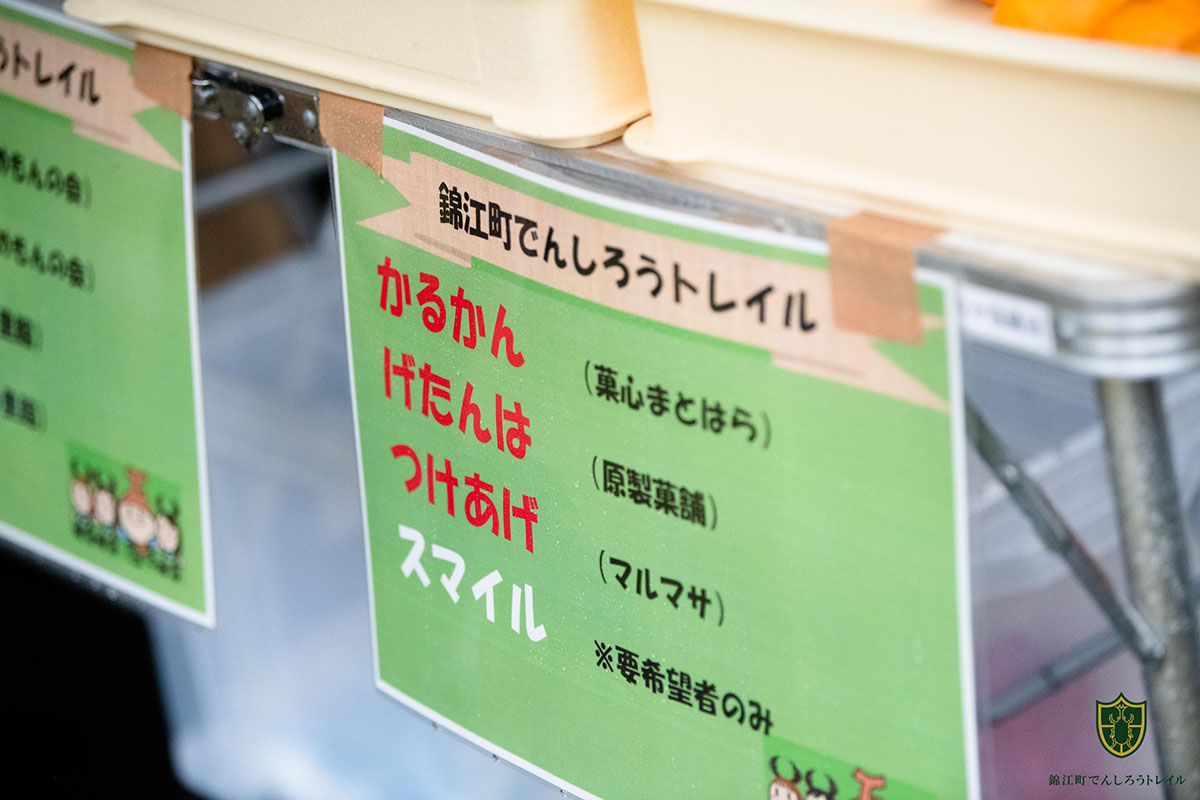 うトレイル
めもんの会)
めもんの会)
錦江町でんしろうトレイル
かるかん (菓心まとはら)
げたんは (原製菓舗)
つけあげ (マルマサ)
スマイル ※要希望者のみ
錦江町でんしろうトレイル